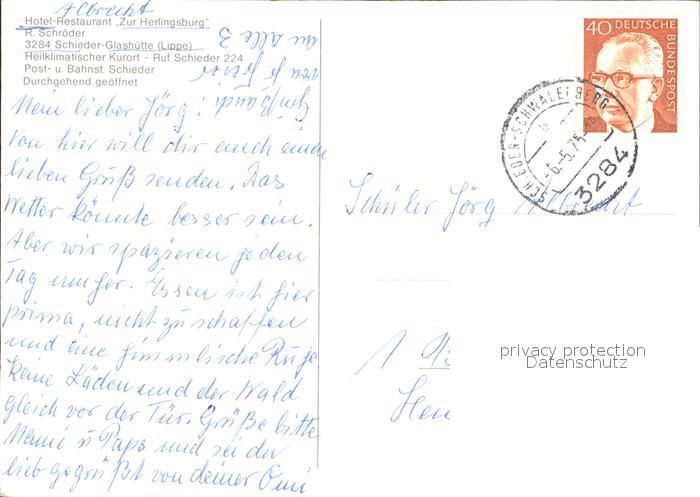 Albrecht
Hotel-Restaurant „Zur Herlingsburg"
R. Schröder
3284 Schieder-Glashütte (Lippe)
Heilklimatischer Kurort - Ruf Schieder 224
Post- u. Bahnst. Schieder
Durchgehend geöffnet
Mein lieber Jörg!
Von hier will dir auch einen
lieben Gruß senden. Das
Wetter könnte besser sein.
Aber wir spazieren jeden
Tag umher. Essen ist hier
prima, nicht zu schaffen
und eine himmlische Ruhe
keine Läden und der Wald
gleich vor der Tür. Grüße bitte
Mami u Papa und sei du
lieb gegrüßt von deiner Omi
an alle 3
von
40 DEUTSCHE
BUNDESPOST
SCHIEDER-SCHWALENBERG 1
b
-6.5.75
3284
Schüler Jörg Albrecht
1
privacy protection
Datenschutz